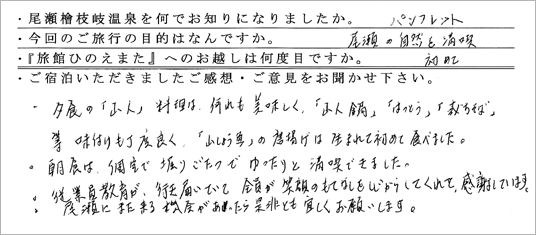 ・尾瀬檜枝岐温泉を何でお知りになりましたか。 パンフレット
・今回のご旅行の目的はなんですか。 尾瀬の自然を満喫
・『旅館ひのえまた』へのお越しは何度目ですか。 初めて
・ご宿泊いただきましたご感想・ご意見をお聞かせ下さい。
・夕食の「山人」料理は、何れも美味しく、「山人鍋」「はっとう」「裁ちそば」
等 味付けも丁度良く、「山しょう魚」の唐揚げは生まれて初めて食べました。
・朝食は、個室で堀りごたつでゆったりと満喫できました。
・従業員教育が、行き届いていて全員が笑顔のもてなしを心からしてくれて、感謝しています。
・尾瀬にまた来る機会があったら是非とも宜しくお願いします。